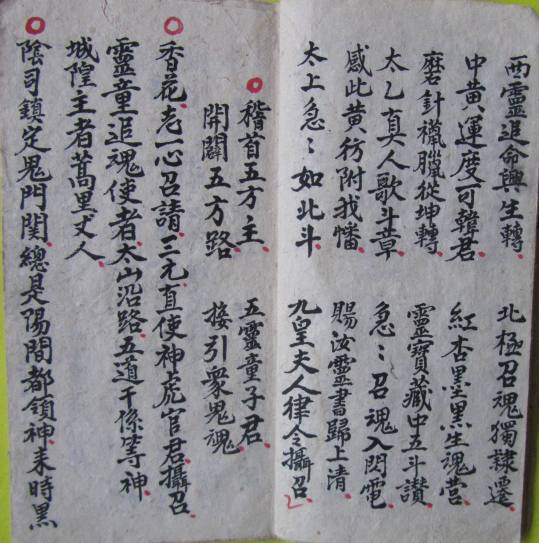 西靈追命興生轉 北極召魂獨隸遷
中黃運度可韓君 紅杏墨黑生魂營
磨針臘從坤轉 靈寶藏中五斗讃
太乙真人歌斗章 急〻召魂入閃電
感此黃彷附我幡 賜汝靈書歸上清
太上急〻如此斗 九皇夫人律令攝召
稽首五方主 五靈童子君
開闢五方路 接引衆鬼魂
香花 老一心召請 三元直使神虎官君攝召
靈童追魂使者太山沿路五道干係等神
城隍主者蒿里丈人
陰司鎮定鬼門関總是陽間都領神來時黑